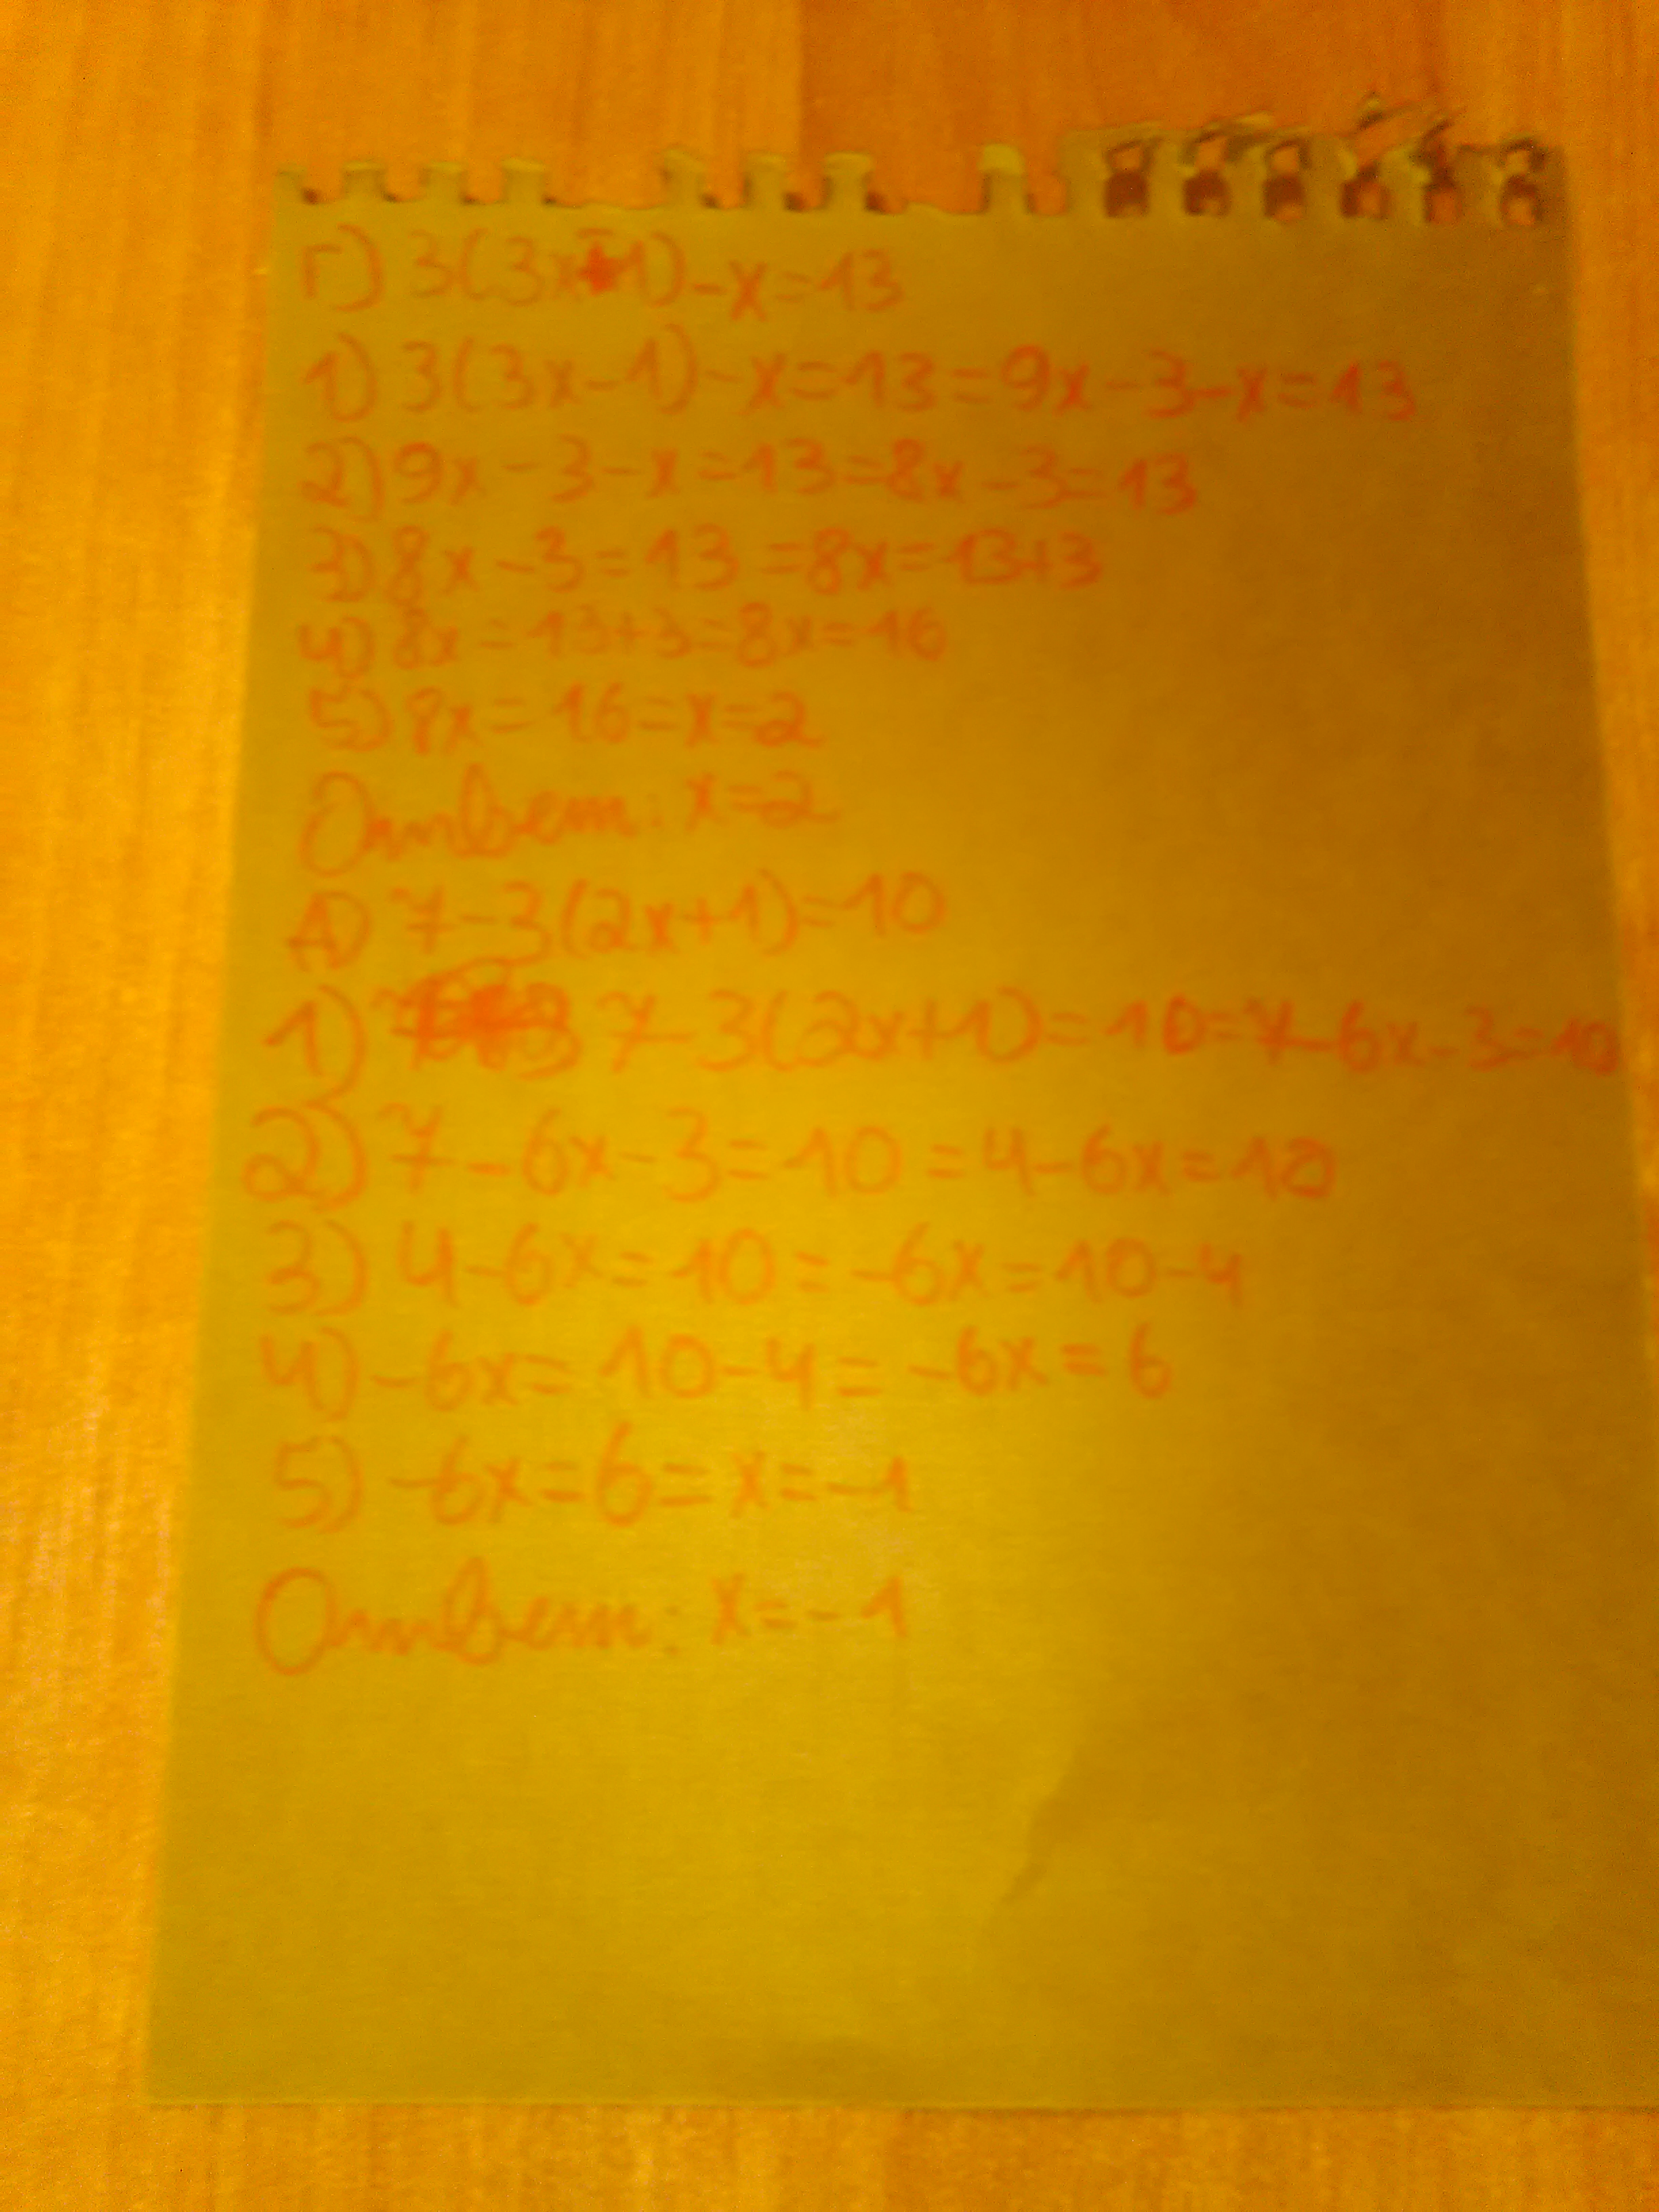 Г) 3(3x-1)-x=13
1) 3(3x-1)-x=13=9x-3-x=13
2) 9x-3-x=13=8x-3=13
3) 8x-3=13=8x=13+3
4) 8x=13+3=8x=16
5) 8x=16=x=2
Ответ: x=2
Д) 7-3(2x+1)=10
1) 7-3(2x+1)=10=7-6x-3=10
2) 7-6x-3=10=4-6x=10
3) 4-6x=10=-6x=10-4
4) -6x=10-4=-6x=6
5) -6x=6=x=-1
Ответ: x=-1